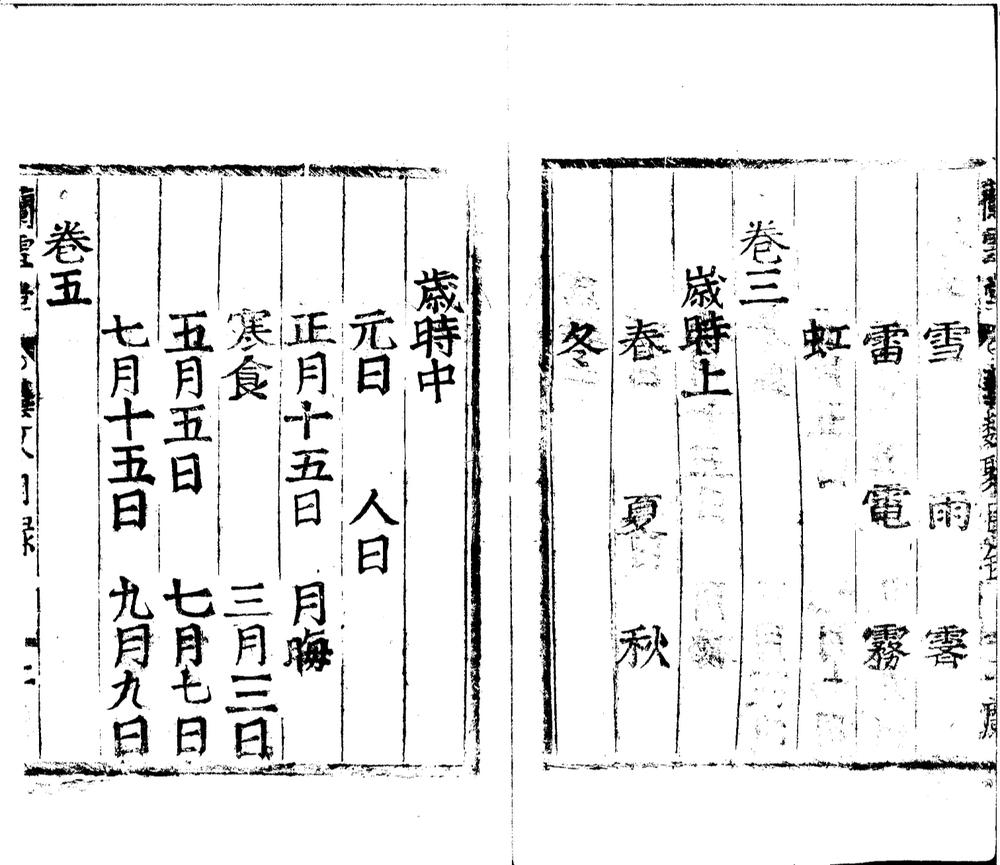 雪 雨 霽
雷 電 霧
虹
卷三
歲時上
春 夏 秋
冬
歲時中
元日 人日
正月十五日 月晦
寒食 三月三日
五月五日 七月七日
七月十五日 九月九日
卷五